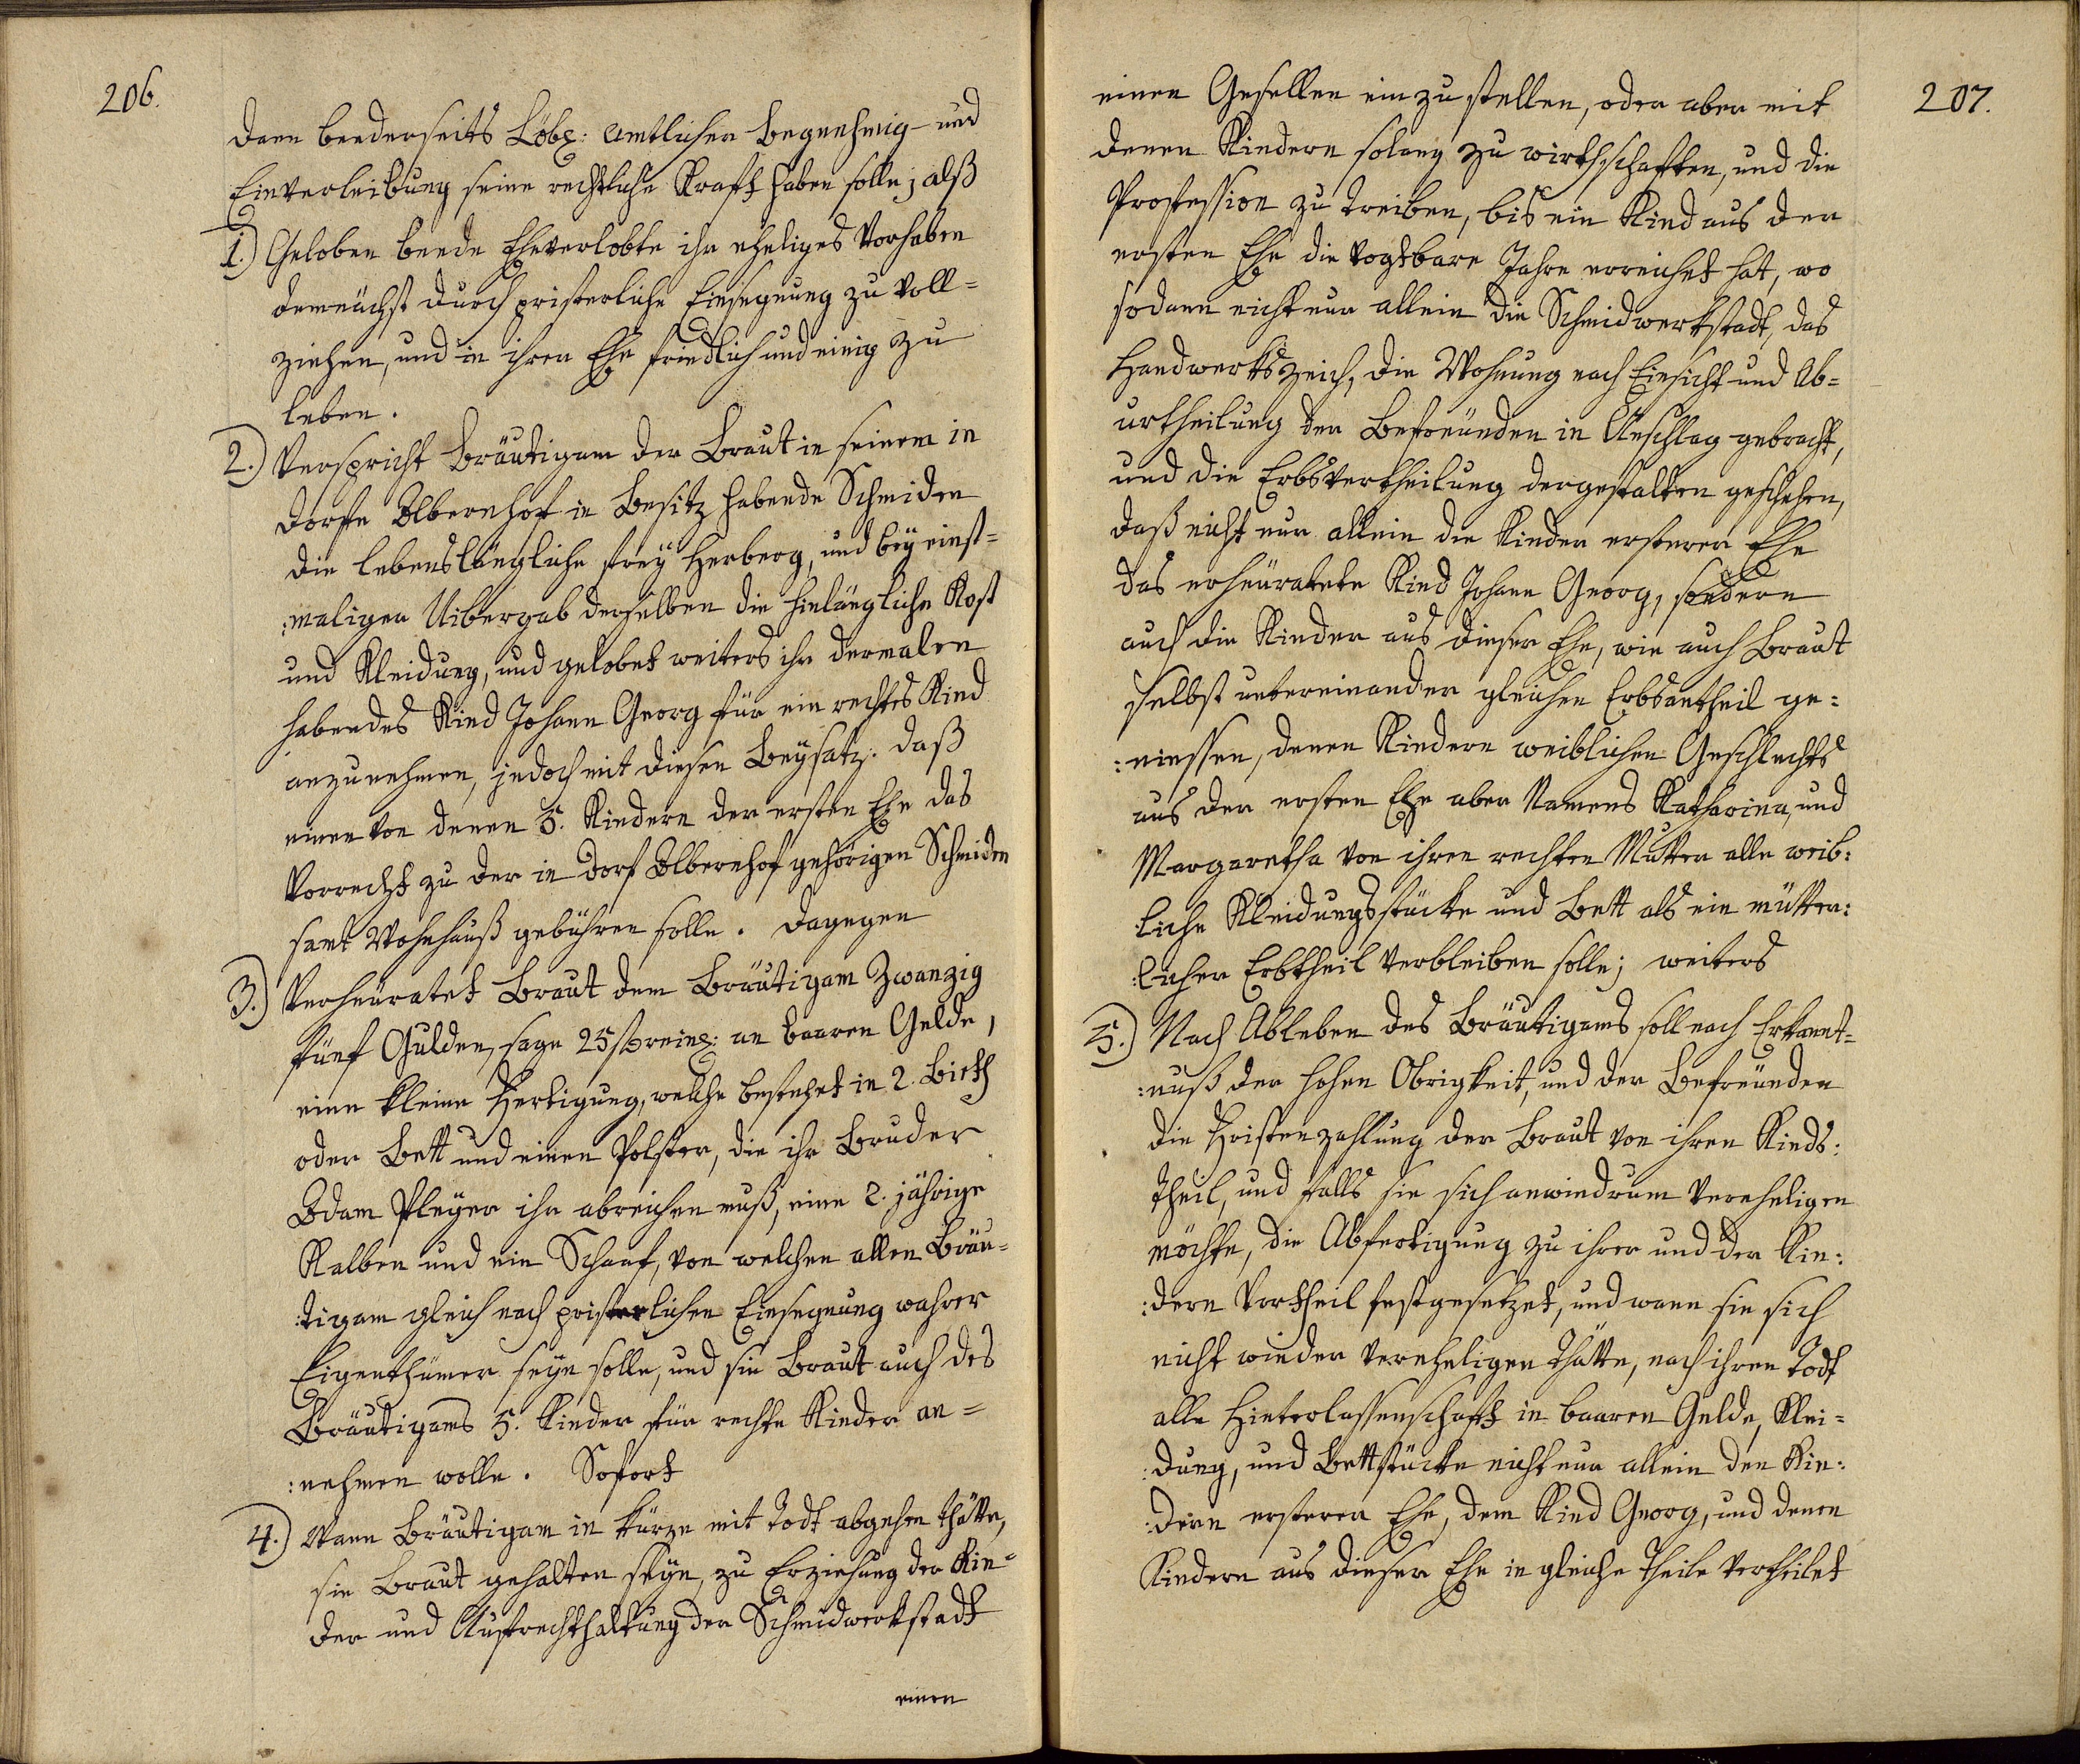 206.
dann beederseits Löbl: amtlicher Begnehmig- und
Einverleibung seine rechtliche Kraft haben solle; alß
1.) Geloben beede Eheverlobte ihr eheliges Vorhaben
demnächst durch pristerliche Einsegnung zu voll=
ziehen, und in ihrer Ehe friedlich und einig zu
leben.
2.) Verspricht Bräutigam der Braut in seinem in
Dorfe Albernhof in Besitz habende Schmiden
die lebenslängliche frey Herberg, und bey einst=
:maligen Uibergab derselben die hinlängliche Kost
und Kleidung, und gelobet weiters ihr dermalen
habendes Kind Johann Georg für ein rechtes Kind
anzunehmen, jedoch mit diesen Beysatz: daß
einen von denen 5. Kindern der ersten Ehe das
Vorrecht zu der in Dorf Albernhof gehörigen Schmiden
samt Wohnhauß gebühren solle. Dagegen
3.) Verheuratet Braut dem Bräutigam Zwanzig
fünf Gulden, sage 25 f reinl: an baaren Gelde,
eine kleine Fertigung, welche bestehet in 2. Bieth
oder Bett und einen Polster, die ihr Bruder
Adam Pleyer ihr abreichen muß, eine 2. jährige
Kalben und ein Schaaf, von welchen allen Bräu=
:tigam gleich nach pristerlichen Einsegnung wahrer
Eigenthümer seyn solle, und sie Braut auch des
Bräutigams 5. Kinder für rechte Kinder an=
:nehmen wolle. Sofort
4.) Wann Bräutigam in kürze mit Todt abgehen thätte,
sie Braut gehalten seyn, zu Erziehung der Kin=
der und Aufrechthaltung der Schmidwerkstadt
einen
207.
einen Gesellen einzustellen, oder aber mit
denen Kindern solang zu wirthschaften, und die
Profession zu treiben, bis ein Kind aus der
ersten Ehe die vogtbare Jahre erreichet hat, wo
sodann nicht nur allein die Schmidwerkstadt, das
Handwerkszeich, die Wohnung nach Einsicht und Ab=
urtheilung der Befreünden in Anschlag gebracht,
und die Erbsvertheilung dergestalten geschehen,
daß nicht nur allein die Kinder ersterer Ehe
das erheuratete Kind Johann Georg, sondern
auch die Kinder aus dieser Ehe, wie auch Braut
selbst untereinander gleichen Erbsantheil ge:
:niessen, denen Kindern weiblichen Geschlechts
aus der ersten Ehe aber Namens Katharina, und
Margaretha von ihrer rechten Mutter alle weib:
:liche Kleidungsstücke und Bett als ein mütter:
:licher Erbtheil verbleiben solle; weiters
5.) Nach Ableben des Bräutigams soll nach Erkannt=
:nuß der hohen Obrigkeit, und der Befreünden
die Fristenzahlung der Braut von ihren Kinds:
theil, und falls sie sich anwiedrum vereheligen
möchte, die Abfertigung zu ihrer und der Kin:
:dern Vortheil festgesetzet, und wann sie sich
nicht wieder vereheligen thätte, nach ihren Todt
alle Hinterlassenschaft in baaren Gelde, Klei=
:dung, und Bettstücke nicht nur allein den Kin:
:dern ersterer Ehe, dem Kind Georg, und denen
Kindern aus dieser Ehe in gleiche Theile vertheilet